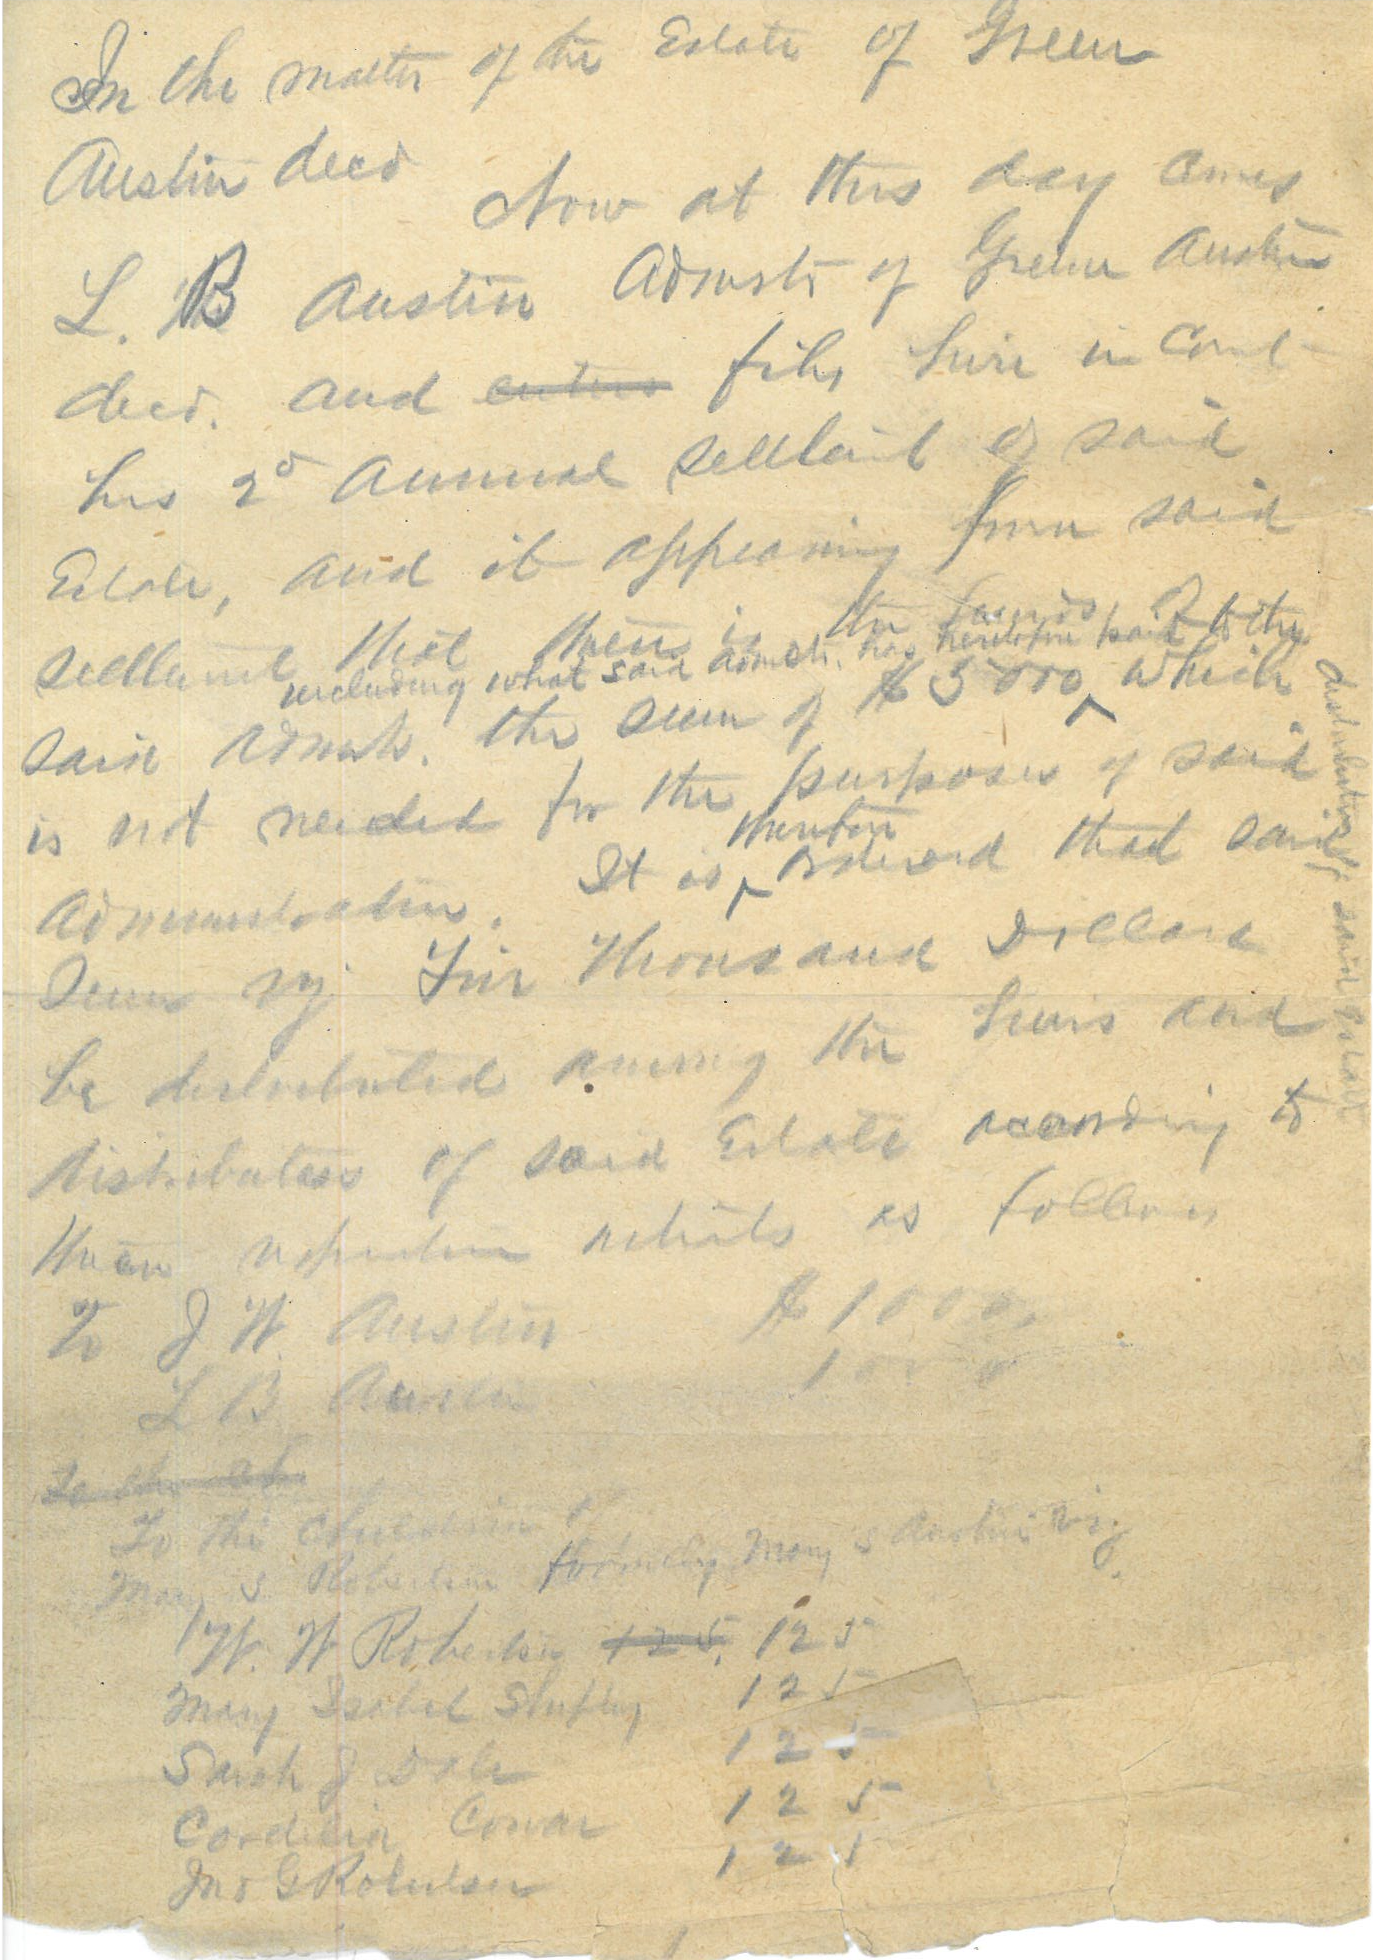 In the matter of the Estate of Green
Austin decd
Now at this day comes
L. B Austin Admstr of Green Austin
decd. and enters files here in Court
his 2d Annual settlemt of said
Estate, and it appearing from said
settlement that there is in the hands of
said Admstr. the sum of $5000, which
including what said admstr. has heretofore paid to the
distributees of said Estate
is not needed for the purposes of said
Administration. It is ordered that said
therefore
Sum viz Five Thousand Dollars
be distributed among the heirs and
distributees of said Estate according to
their respective as follows
To J W Austin $1000.
L B Austin 1000
To the
To the children of
Mary S Robertson formerly Mary S Austin viz.
W. W Robertson 125, 125
Mary Isabel 125
Sarah J Dale 125
Cordelia 125
Jno G Robertson 125